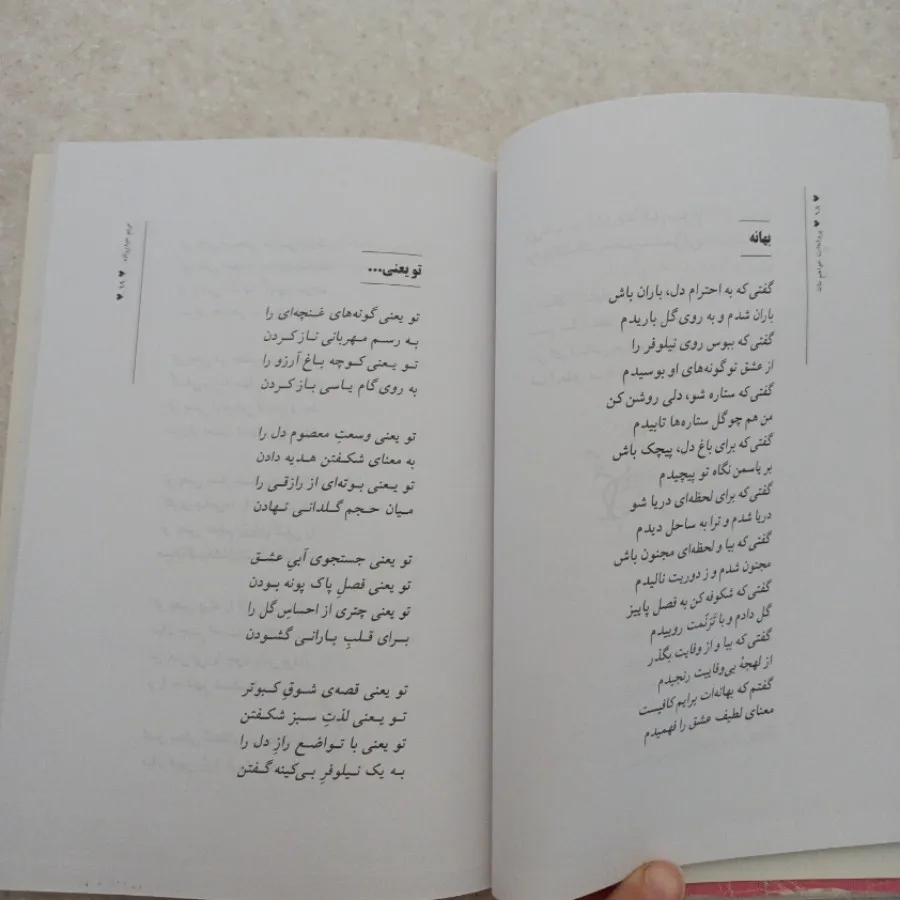 ♥ ۶۸ ♥ پروانه‌ات خواهم ماند
بهانه
گفتی که به احترام دل، باران باش
باران شدم و به روی گل باریدم
گفتی که ببوس روی نیلوفر را
از عشق تو گونه‌های او بوسیدم
گفتی که ستاره شو، دلی روشن کن
من هم چو گل ستاره‌ها تابیدم
گفتی که برای باغ دل، پیچک باش
بر یاسمن نگاه تو پیچیدم
گفتی که برای لحظه‌ای دریا شو
دریا شدم و ترا به ساحل دیدم
گفتی که بیا و لحظه‌ای مجنون باش
مجنون شدم و ز دوریت نالیدم
گفتی که شکوفه کن به فصل پاییز
گل دادم و با تَرَنّمت روییدم
گفتی که بیا و از وفایت بگذر
از لهجهٔ بی‌وفاییت رنجیدم
گفتم که بهانه‌ات برایم کافیست
معنای لطیف عشق را فهمیدم
مریم حیدرزاده ♥ ۶۹ ♥
تو یعنی...
تو یعنی گونه‌های غنچه‌ای را
به رسم مهربانی نازکردن
تو یعنی کوچه باغ آرزو را
به روی گام یاسی بازکردن
تو یعنی وسعتِ معصوم دل را
به معنای شکفتن هدیه دادن
تو یعنی بوته‌ای از رازقی را
میان حجم گلدانی نهادن
تو یعنی جستجوی آبیِ عشق
تو یعنی فصلِ پاک پونه بودن
تو یعنی چتری از احساسِ گل را
برای قلبِ بارانی گشودن
تو یعنی قصه‌ی شوقِ کبوتر
تو یعنی لذتِ سبز شکفتن
تو یعنی با تواضع رازِ دل را
به یک نیلوفرِ بی‌کینه گفتن